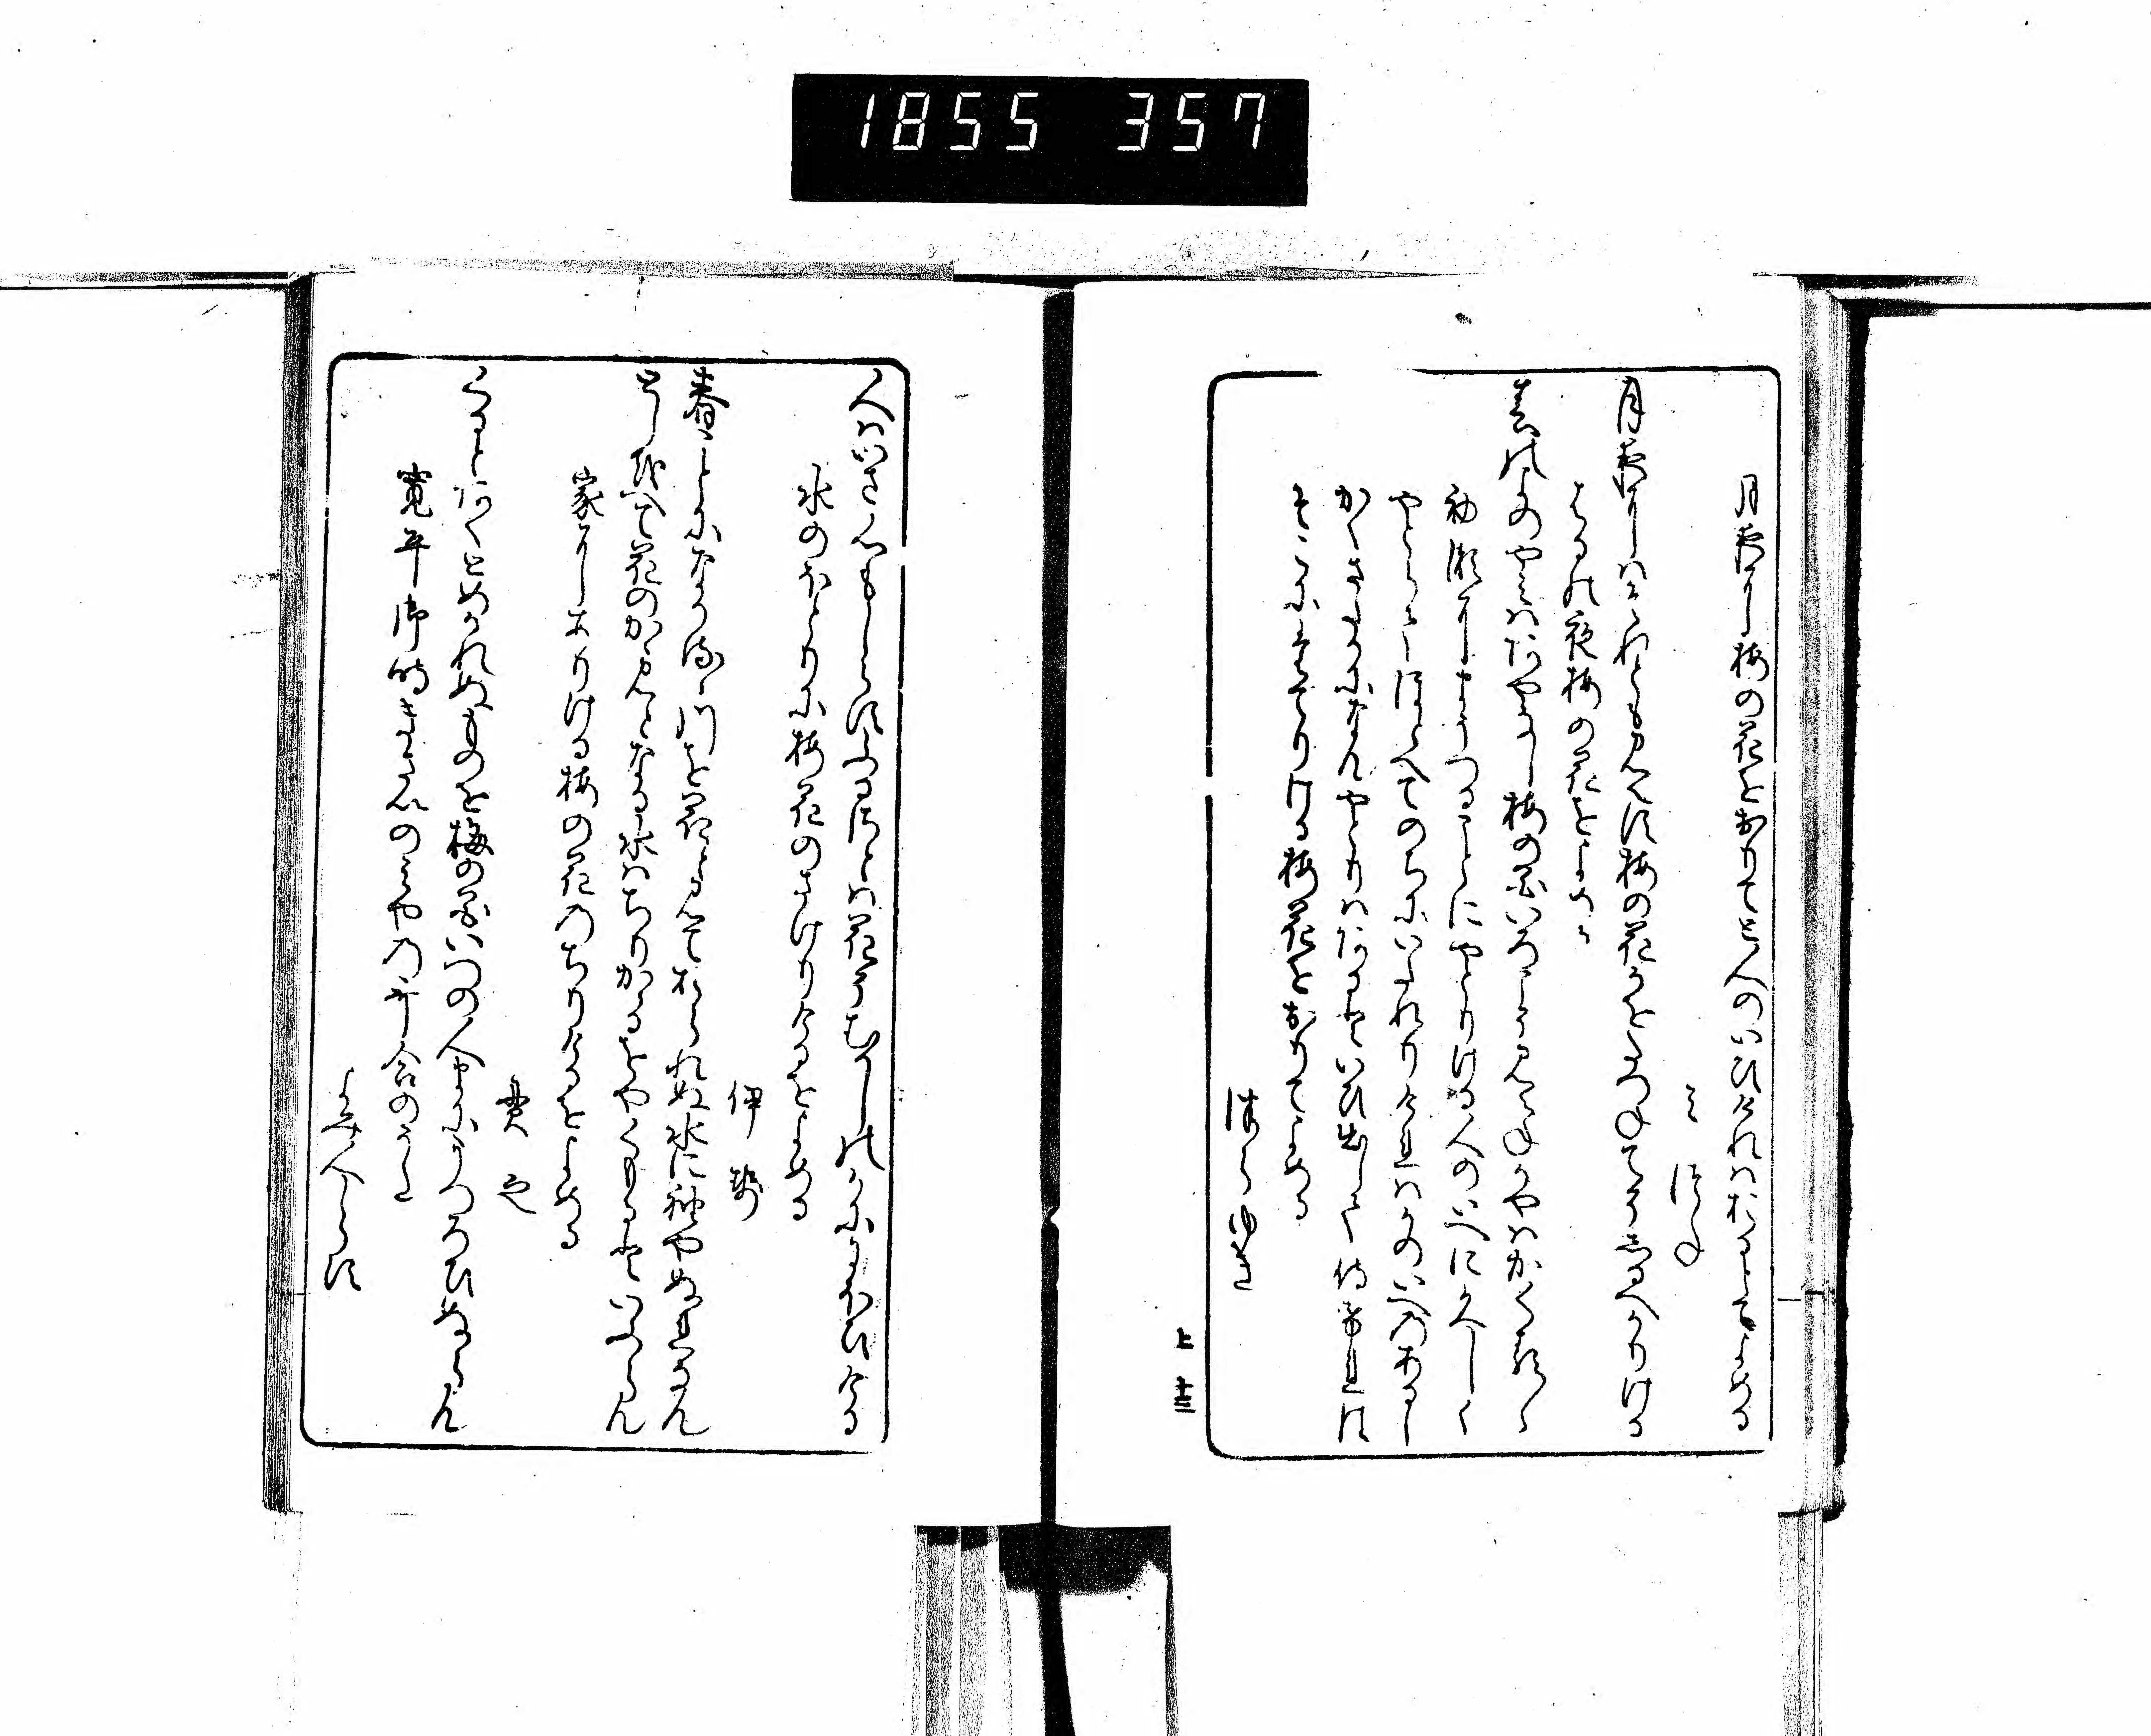 1855 357
月夜に梅の花をおりてと人のいひけれはおるとてよめる
みつね
月夜にはそれともみえす梅の花かをたつねてそしるへかりける
はるの夜梅の花をよめる
春の夜のやみはあやなし梅の花いろこそみえねかやはかくるゝ
初瀬にまうつることにやとりける人の家に久しく
やとらてほとへてのちにいたれりけれはかの家のあるし
かくさたかになんやとりはあるといひ出して侍けれは
そこにたてりける梅花をおりてよめる
つらゆき
上 十三
人はいさ心もしらすふるさとは花そむかしのかににほひける
水のほとりに梅花のさけりけるをよめる
伊勢
春ことになかるゝ河を花とみておられぬ水に袖やぬれなん
としをへて花のかゝみとなる水はちりかゝるをやくもるといふらん
家にありける梅の花のちりけるをよめる
貫之
くるとあくとめかれぬものを梅の花いつの人まにうつろひぬらん
寛平御時きさいのみやの哥合のうた
よみ人しらす